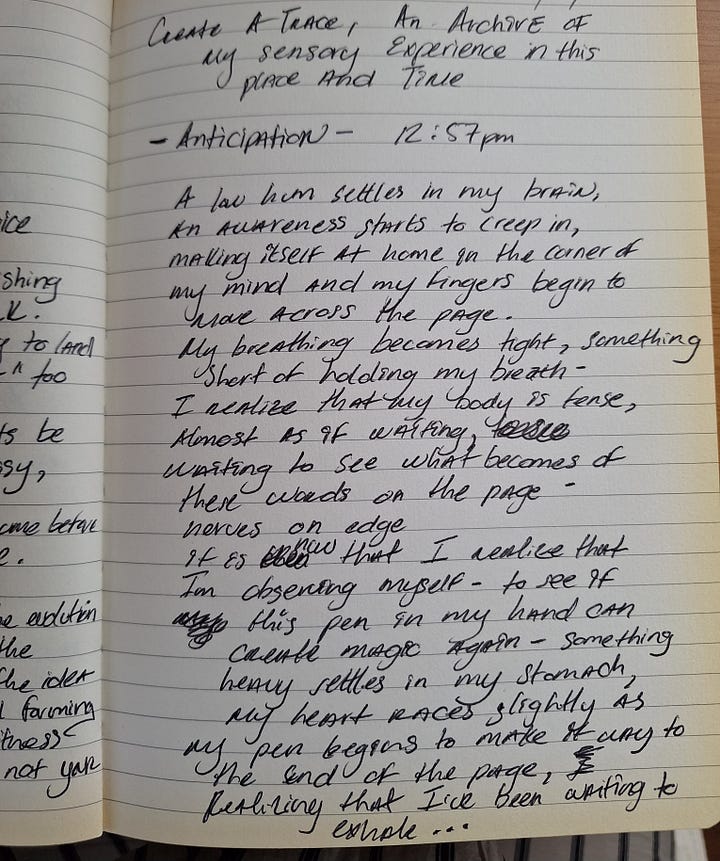 ice
shing
k.
to land
" too
ts be
sy,
came before
e.
e evolution
the
the idea
l farming
itness
not yar
Create A Trace, An Archive of
my sensory Experience in this
place And Time
- Anticipation - 12:57pm
A low hum settles in my brain,
An awareness starts to creep in,
making itself at home in the corner of
my mind and my fingers begin to
move across the page.
My breathing becomes tight, something
short of holding my breath -
I realize that my body is tense,
Almost as if waiting,
waiting to see what becomes of
these words on the page -
nerves on edge
it is now that I realize that
I'm observing myself - to see if
this pen in my hand can
create magic again - something
heavy settles in my stomach,
my heart races slightly as
my pen begins to make it way to
the end of the page,
Realizing that I've been waiting to
exhale...